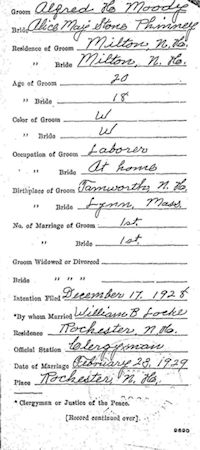 Groom Alfred H. Moody
Bride Alice May Stone Phinney
Residence of Groom Milton, N. H.
" Bride Milton, N. H.
Age of Groom 20
" Bride 18
Color of Groom W
" Bride W
Occupation of Groom Laborer
" Bride At home
Birthplace of Groom Tamworth, N. H.
" Bride Lynn, Mass.
No. of Marriage of Groom 1st.
" Bride 1st.
Groom Widowed or Divorced
Bride " " "
Intention Filed December 17, 1928
*By whom Married William B. Locke
Residence Rochester, N. H.
Official Station Clergyman
Date of Marriage February 23, 1929
Place Rochester, N. H.
* Clergyman or Justice of the Peace.
[Record continued over].
9690